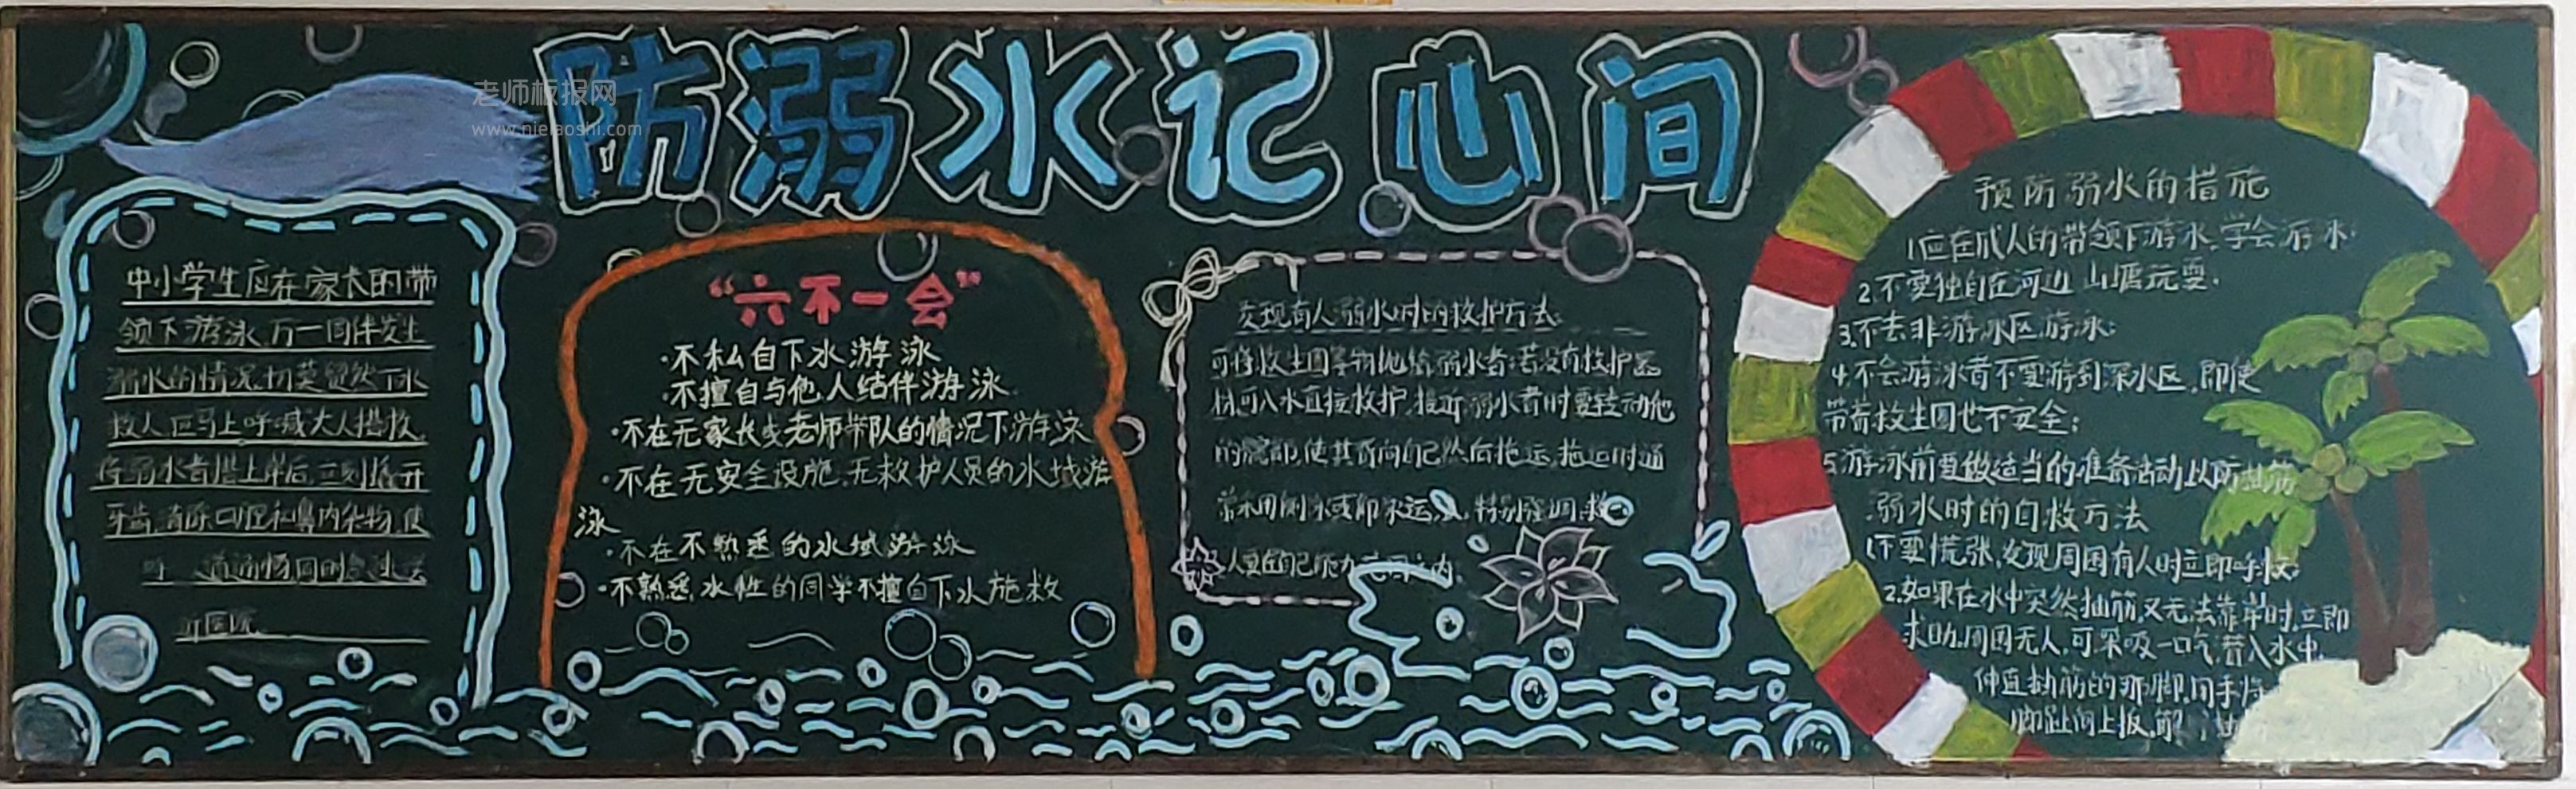 老师板报网
www.nielaoshi.com
防溺水记心间
中小学生应在家长的带
领下游泳,万一同伴发生
溺水的情况,切莫贸然下水
救人应马上呼喊大人搭救,
待弱水者搭上岸后,立刻撬开
牙齿,清除口腔和鼻内杂物,使
呼 道通畅同时急速送
近医院.
“六不一会”
·不私自下水游泳
·不擅自与他人结伴游泳
·不在无家长或老师带队的情况下游泳
·不在无安全设施,无救护人员的水域游
泳
·不在不熟悉的水域游泳
·不熟悉水性的同学不擅自下水施救
发现有人弱水时的救护方法:
可将救生圈等物抛给弱水者;若没有救护器
材可入水直接救护,接近弱水者时要转动他
的髋部,使其背向自己然后拖运,拖运时通
常采用侧泳或仰泳运 特别强调:救
人要在自己能力范围之内.
预防弱水的措施
1.应在成人的带领下游水,学会游水;
2.不要独自在河边 山塘玩耍.
3.不去非游泳区游泳;
4.不会游泳者不要游到深水区,即使
带着救生圈也不安全;
5.游泳前要做适当的准备活动以防抽筋
弱水时的自救方法
1.不要慌张,发现周围有人时立即呼救;
2.如果在水中突然抽筋,又无法靠岸时,立即
求助.周围无人,可深吸一口气,潜入水中,
伸直抽筋的那脚,用手将
脚趾向上扳,